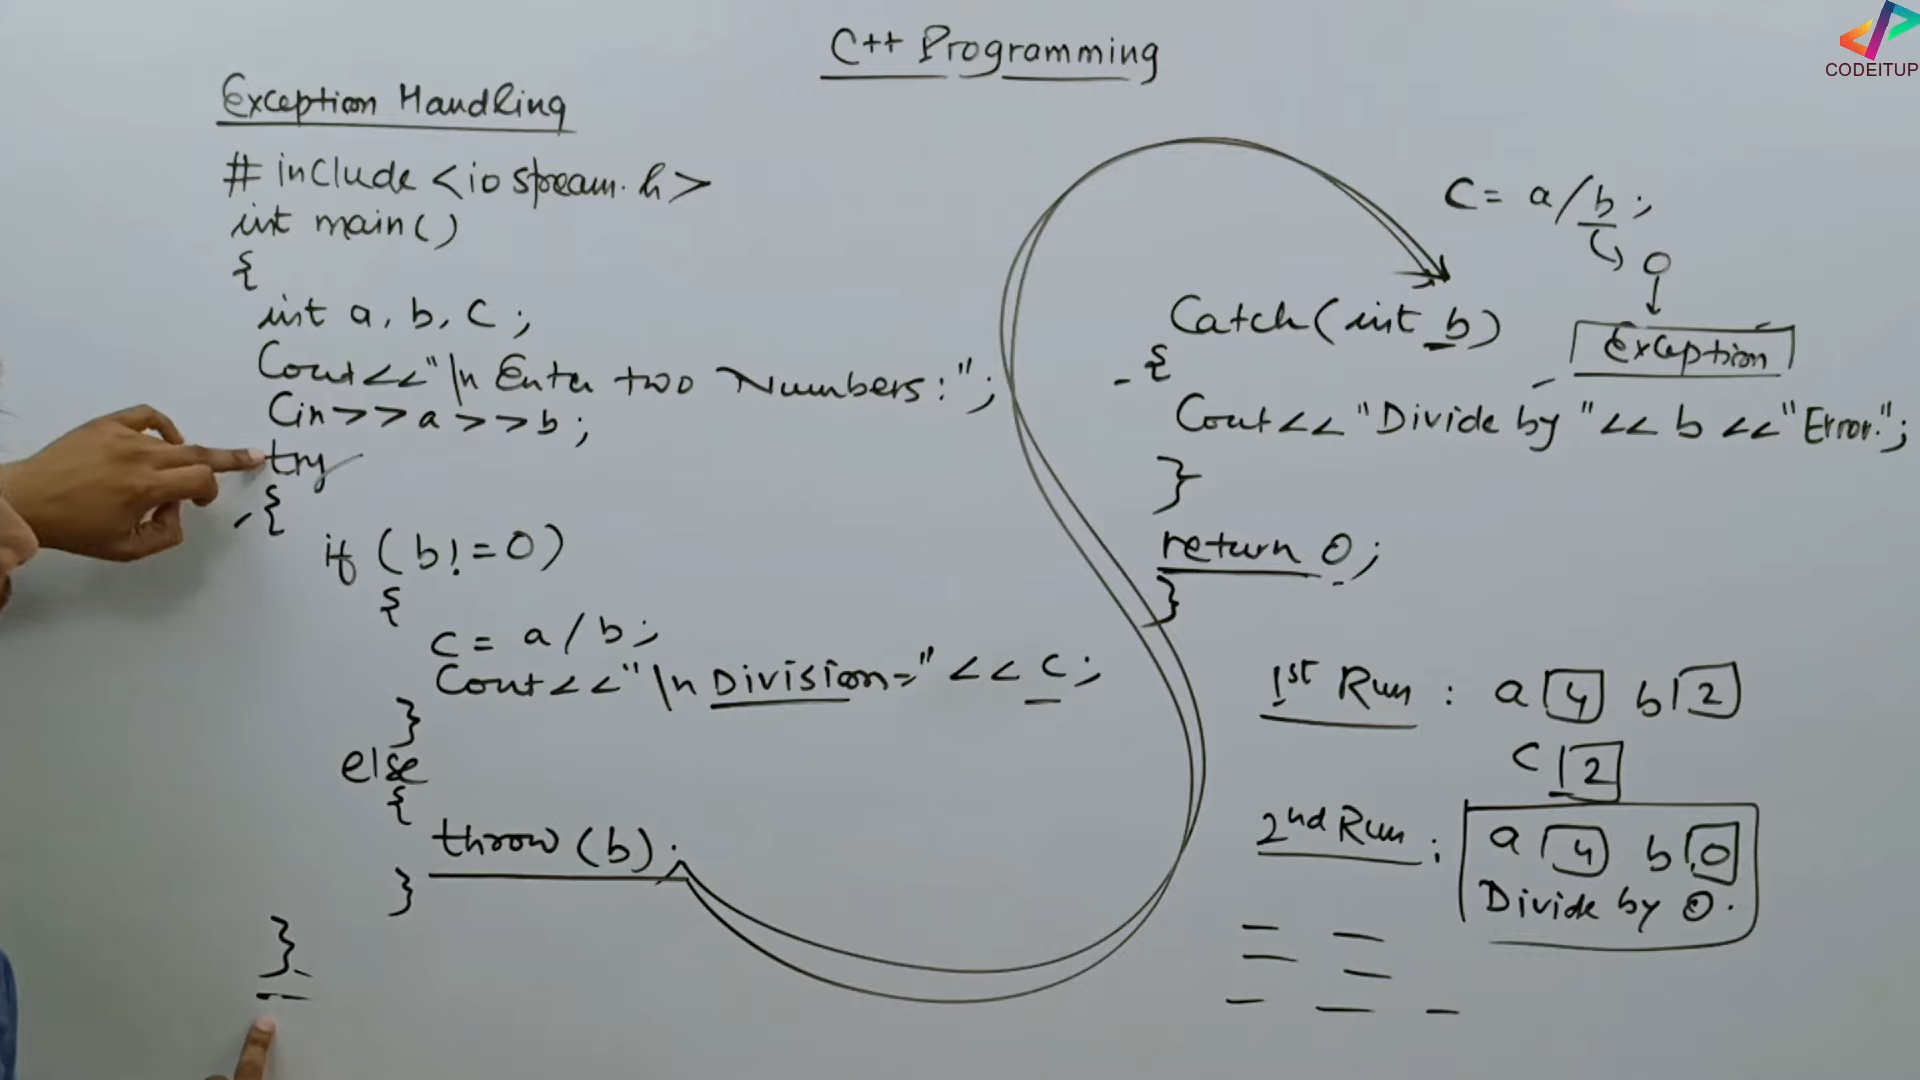 C++ Programming
CODEITUP
Exception Handling
# include <iostream.h>
int main()
{
int a, b, c;
Cout<<"\n Enter two Numbers:";
Cin>>a>>b;
try
{
if (b!=0)
{
c = a/b;
Cout<<"\n Division=" << c;
}
else
{
throw (b);
}
}
C = a/b;
0
Exception
Catch(int b)
{
Cout<< "Divide by "<< b <<"Error.";
}
return 0;
}
1st Run : a 4 b 2
C 2
2nd Run : a 4 b 0
Divide by 0.